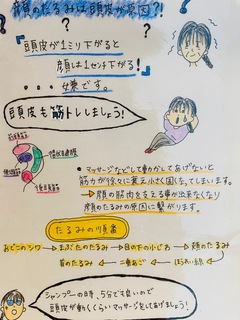 顔のたるみは頭皮が原因?!
頭皮が1ミリ下がると
顔は1センチ下がる!
・・・嫌です。
頭皮も筋トレしましょう!
前頭筋
側頭筋
後頭筋
・マッサージなどして動かしてあげないと
筋力が徐々に衰え小さく固くなってしまいます。
→顔の筋肉を支える事が出来なくなり
顔のたるみの原因に繋がります。
たるみの順番
おでこのシワ→まぶたのたるみ→目の下の小じわ→頬のたるみ
首のたるみ←二重あご←ほうれい線
シャンプーの時、5分でも良いので
頭皮が動くくらいマッサージをしてあげましょう!